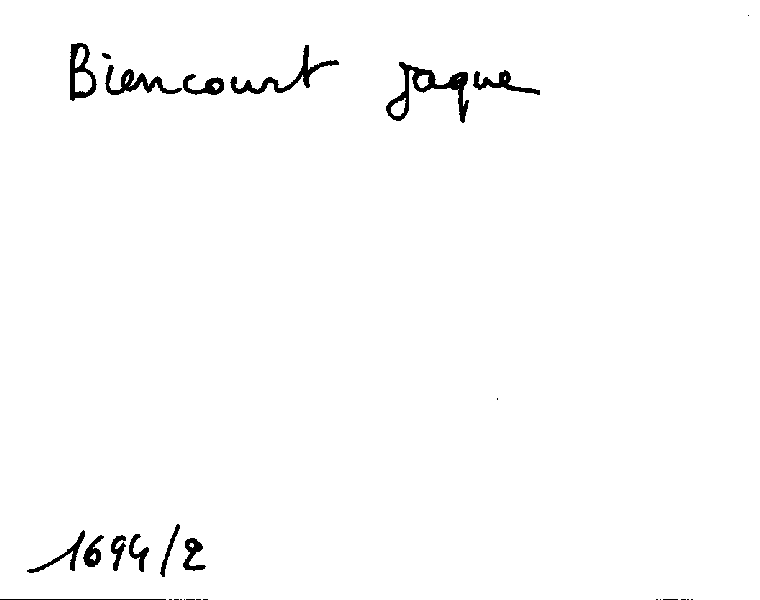 Biencourt Jaque
1694/2